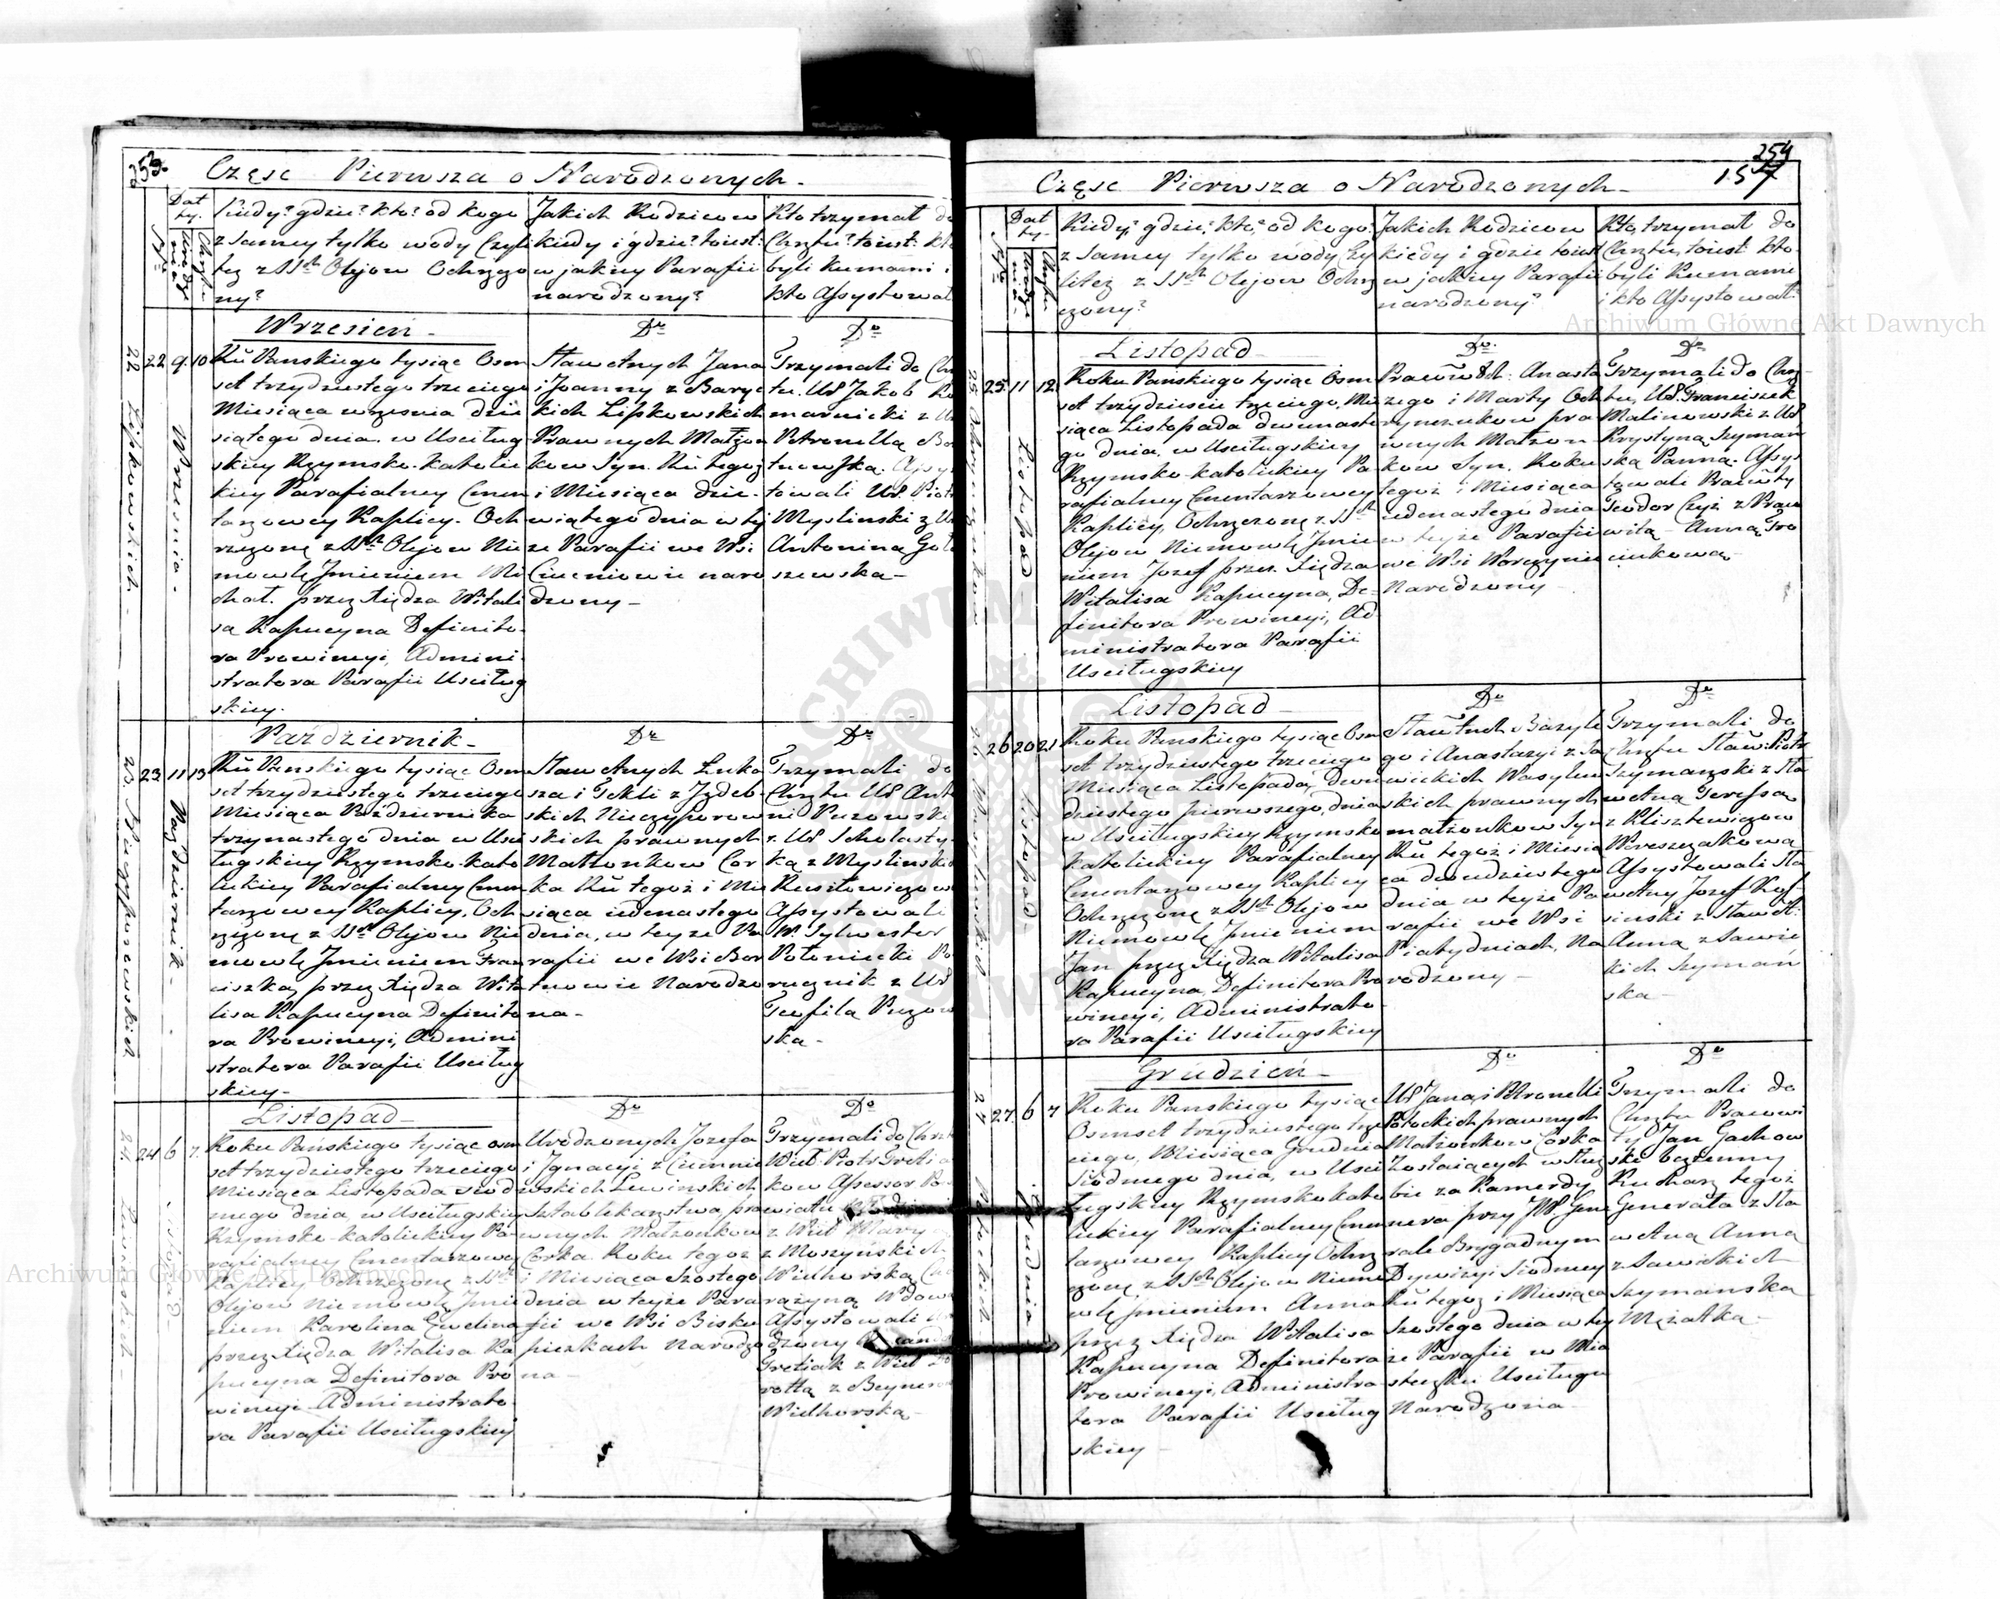 253.
Częsc Pierwsza o Narodzonych -
Kiedy? gdzie? kto? od kogo
z samey tylko wody Czyli
tez z SSch Olejow Ochrzczo
ny?
Jakich Rodzicow
kiedy i gdzie? toiest:
w jakiey Parafii
narodzony?
Kto trzymał do
Chrztu? toiest: kto
byli Kumami i
kto Assystował
22 Lipkowskich -
22 9. 10
Września.
Wrzesień -
Ru Panskiego tysiąc Osm
set trzydziestego trzeciego
Miesiąca września dzie
siątego dnia. w Usciług
skiey Rzymsko-katolic
kiey Parafialney Cmen
tarzowey Kaplicy. Och
rzczone z SSch Olejow Nie
mowlę Jmieniem Mi
chał. przez Xiędza Witali
sa Kapucyna Definito-
ra Prowincyi, Admini-
stratora Parafii Usciług
skiey.
Do
Sławetnych Jana
i Joanny z Baryc
kich Lipkowskich
Prawnych Małżon
kow Syn. Ru tegoż
i Miesiąca dzie-
wiątego dnia w tey
że Parafii we Wsi
naro
dzony -
Do
Trzymali do Ch
tu. Ur Jakob
z U
Petronellą
Assy
towali Ur. Piotr
Myslinski z Ur
Antoniną Goł
szewską -
23. Nieczyporowskich
23 11 13
Październik -
Październik -
Ru Panskiego tysiąc Osm
set trzydziestego trzeciego
Miesiąca Października
trzynastego dnia w Usci
ługskiey Rzymsko-kato
lickiey Parafialney Cmen
tarzowey Kaplicy. Och
rzczone z SSch Olejow Nie
mowlę Jmieniem Fran
ciszka, przez Xiędza Wita
lisa Kapucyna Definito
ra Prowincyi, Admini
stratora Parafii Usciług
skiey -
Do
Sławetnych Łuka
sza i Tekli z Jzdeb-
skich Nieczyporow
skich prawnych
Małżonkow Cor
ka Ru tegoż i Mie
siąca iedenastego
dnia, w teyże Pa
rafii we Wsi Bor
tnowie Narodzo
na -
Do
Trzymali do
Chrztu Ur Anto
ni Puzowski
z Ur Scholasty-
ką z Myslinskich
Assystowali
W. Sylwester
Potoniecki Po
rucznik z Ur
Teofilą Puzow
ską -
24 Lewinskich -
24 6 7.
Listopad
Listopad -
Roku Pańskiego tysiąc osm
set trzydziestego trzeciego
Miesiąca Listopada siod
mego dnia, w Usciługskiey
Rzymsko-katolickiey Pa-
rafialney Cmentarzowey
Kaplicy Ochrzczone z SSch
Olejow Niemowlę Jmie
niem Karolina Ewelina
przez Xiędza Witalisa Ka
pucyna Definitora Pro
wincyi Administrato
ra Parafii Usciługskiey
Do
Urodzonych Jozefa
i Jgnacyi z
wskich Lewinskich
Sztablekarstwa pra
wnych Małżonkow
Corka. Roku tegoż
i Miesiąca Szostego
dnia w teyże Para
fii we Wsi Bisku
piczkach Narodzo
na -
Do
Trzymali do Chrztu
Wiel. Piotr Tretia
kow Assessor Po
wiatu
z Wiel Mary
z Moszynskich
Wielhorską
Wdową
Assystowali
dzony
Tretiak z Wiel Do
rottą z Beyner
Wielhorską -
254
157
Częsc Pierwsza o Narodzonych -
Kiedy? gdzie? kto? od kogo?
z samey tylko wody Czy
litez z SSch Olejow Ochrz
czony?
Jakich Rodzicow
kiedy i gdzie toiest
w jakiey Parafii
narodzony?
Kto, trzymał do
Chrztu, toiest kto.
byli Kumami
i kto Assystował
Archiwum Główne Akt Dawnych
25. 11 12
Listopad
Listopad
Roku Pańskiego tysiąc Osm
set trzydzieste trzeciego, Mie
siąca Listopada dwunaste
go dnia, w Usciługskiey
Rzymsko-katolickiey Pa
rafialney Cmentarzowey
Kaplicy, Ochrzczone z SSch
Olejow Niemowlę Jmie
niem Jozef przez Xiędza
Witalisa Kapucyna, De-
finitora Prowincyi, Ad
ministratora Parafii
Usciługskiey
Do.
Anasta
zego i Marty Och
rymczukow pra
wnych Małżon
kow Syn. Roku
tegoż i Miesiąca
iedenastego dnia
w teyże Parafii
we Wsi Worczynie
Narodzony -
Do
Trzymali do Chrz-
tu, Ur. Franciszek
Malinowski z Ur
Krystyną Szyman
ską Panną. Assys
towali Prawity
Teodor Czyż z Praco
witą Anną Tro
cinkową -
26 Wasylewskich
26 20 21
Listopad
Listopad -
Roku Pańskiego tysiąc Osm
set trzydziestego trzeciego
Miesiąca Listopada, dwu
dziestego pierwszego, dnia
w Usciługskiey Rzymsko
katolickiey Parafialney
Cmentarzowey Kaplicy
Ochrzczone z SSch Olejow
Niemowlę Jmieniem
Jan przez Xiędza Witalisa
Kapucyna Definitora Pro
wincyi, Administrato
ra Parafii Usciługskiey
Do
Bazyle
go i Anastazyi z Sa
wickich Wasylew
skich prawnych
małżonkow Syn
Ru tegoż i Miesią
ca dwudziestego
dnia w teyże Pa
rafii we Wsi
Piatydniach, Na
rodzony -
Do
Trzymali do
Chrztu Sław: Piotr
Szymanski z Sła
wetną Teressą
z Klisztewiczow
Pereszczakową
Assystowali Sła
wetny Jozef Kos-
sinski z Sławet:
Anną z Sawic
kich Szymań
ską -
27 Potockich
27. 6 7
Grudnia
Grudzień -
Roku Panskiego tysiąc
Osmset trzydziestego trze
ciego, Miesiąca Grudnia
Siodmego dnia, w Usci
ługskiey Rzymsko kato
lickiey Parafialney Cmen
tarzowey Kaplicy Ochrz
czone z SSch Olejow Niemo
wlę Jmieniem Anna
przez Xiędza Witalisa
Kapucyna Definitora
Prowincyi, Administra
tora Parafii Usciług
skiey -
Do
Ur Jana i Petronelli
Potockich prawnych
Małżonkow Corka
Zostaiących w Służ
bie za Kamerdy
nera przy JW. Gene
rale Brygadnym
Dywizyi Siodmey
Ru tegoż i Miesiąca
Szostego dnia w tey
że Parafii w Mia
steczku Usciługu
Narodzona -
Do
Trzymali do
Chrztu Pracowi
ty Jan Gachow
ski bezenny
Kucharz tegoż
Generała z Sła
wetną Anną
z Sawickich
Szymanską
Mężatką -
Archiwum Główne Akt Dawnych